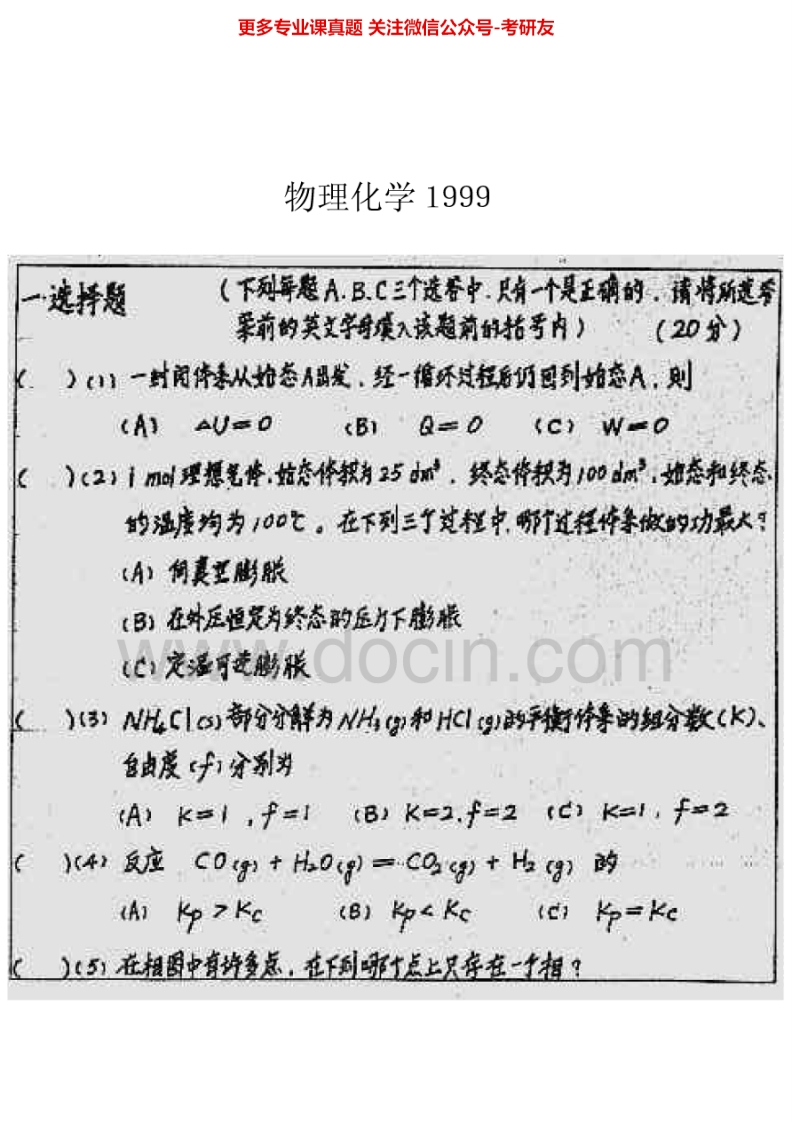 更多专业课真题 关注微信公众号-考研友
物理化学 1999
一.选择题 (下列每题A.B.C三个选答中.只有一个是正确的.请将所选答
案前的英文字母填入该题前的括号内) (20分)
( )(1) 一封闭体系从始态A出发.经一循环过程后仍回到始态A.则
(A) ΔU=0 (B) Q=0 (C) W=0
( )(2) 1 mol理想气体.始态体积为25 dm³.终态体积为100 dm³.始态和终态
的温度均为100℃。在下列三个过程中.哪个过程体系做的功最大?
(A) 向真空膨胀
(B) 在外压恒定为终态的压力下膨胀
(C) 定温可逆膨胀
www.docin.com
( )(3) NH₄Cl(s)部分分解为NH₃(g)和HCl(g)的平衡体系的组分数(K)、
自由度(f)分别为
(A) K=1,f=1 (B) K=2.f=2 (C) K=1.f=2
( )(4) 反应 CO(g) + H₂O(g) = CO₂(g) + H₂(g) 的
(A) Kp>Kc (B) Kp<Kc (C) Kp=Kc
( )(5) 在相图中有许多点.在下列哪个点上只存在一个相?